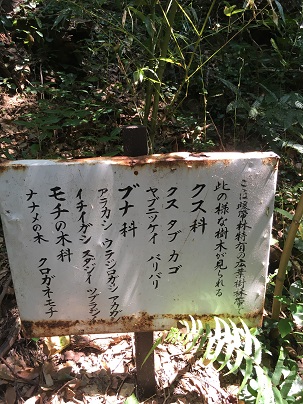 ここは暖帯林特有の広葉樹林帯で
此の様な樹木が見られる
クス科
クス タブ カゴ
ヤブニッケイ バリバリ
ブナ科
アラカシ ウラジロガシ アカガシ
イチイガシ スダジイ ツブラジイ
モチの木科
ナナメの木 クロガネモチ